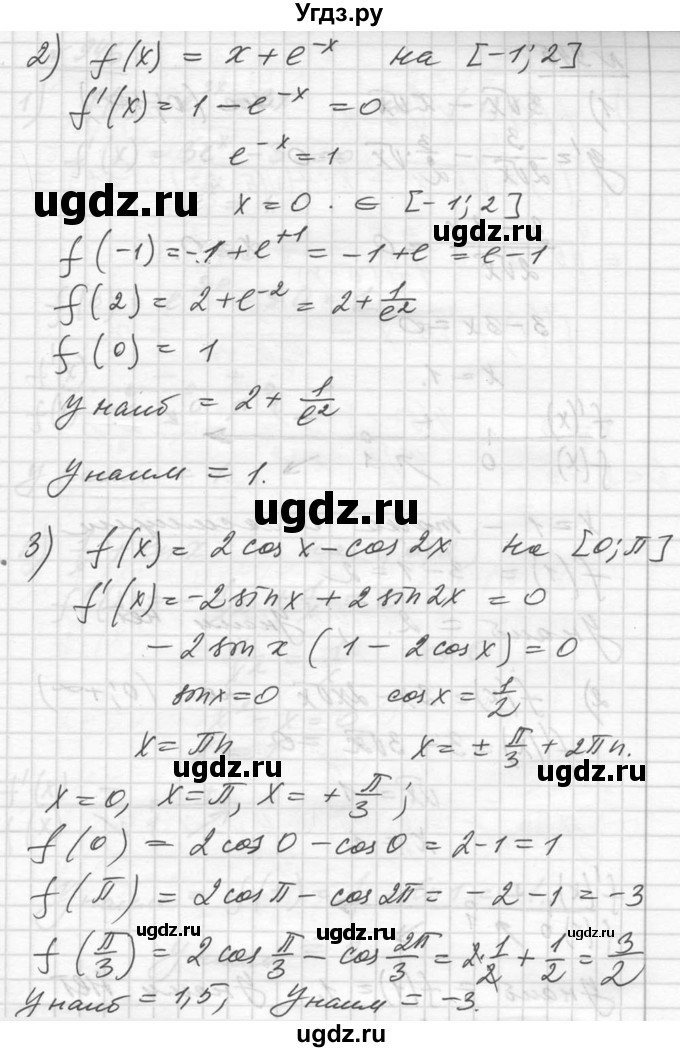 Угдз.ру
2) f(x) = x + e^{-x} на [-1; 2]
f'(x) = 1 - e^{-x} = 0
e^{-x} = 1
ugdz.ru
x = 0. ∈ [-1; 2]
ugdz.ru
f(-1) = -1 + e^{+1} = -1 + e = e - 1
f(2) = 2 + e^{-2} = 2 + 1/e²
f(0) = 1
y наиб = 2 + 1/e²
y наим = 1.
ugdz.ru
3) f(x) = 2cos x - cos 2x на [0; π]
f'(x) = -2 sin x + 2 sin 2x = 0
-2 sin x (1 - 2cos x) = 0
sin x = 0 cos x = 1/2
x = πn x = ± π/3 + 2πn.
ugdz.ru ugdz.ru
x = 0, x = π, x = + π/3;
f(0) = 2 cos 0 - cos 0 = 2 - 1 = 1
f(π) = 2 cos π - cos 2π = -2 - 1 = -3
ugdz.ru ugdz.ru ugdz.ru
f(π/3) = 2 cos π/3 - cos 2π/3 = 2·1/2 + 1/2 = 3/2
y наиб = 1,5, y наим = -3.
ugdz.ru